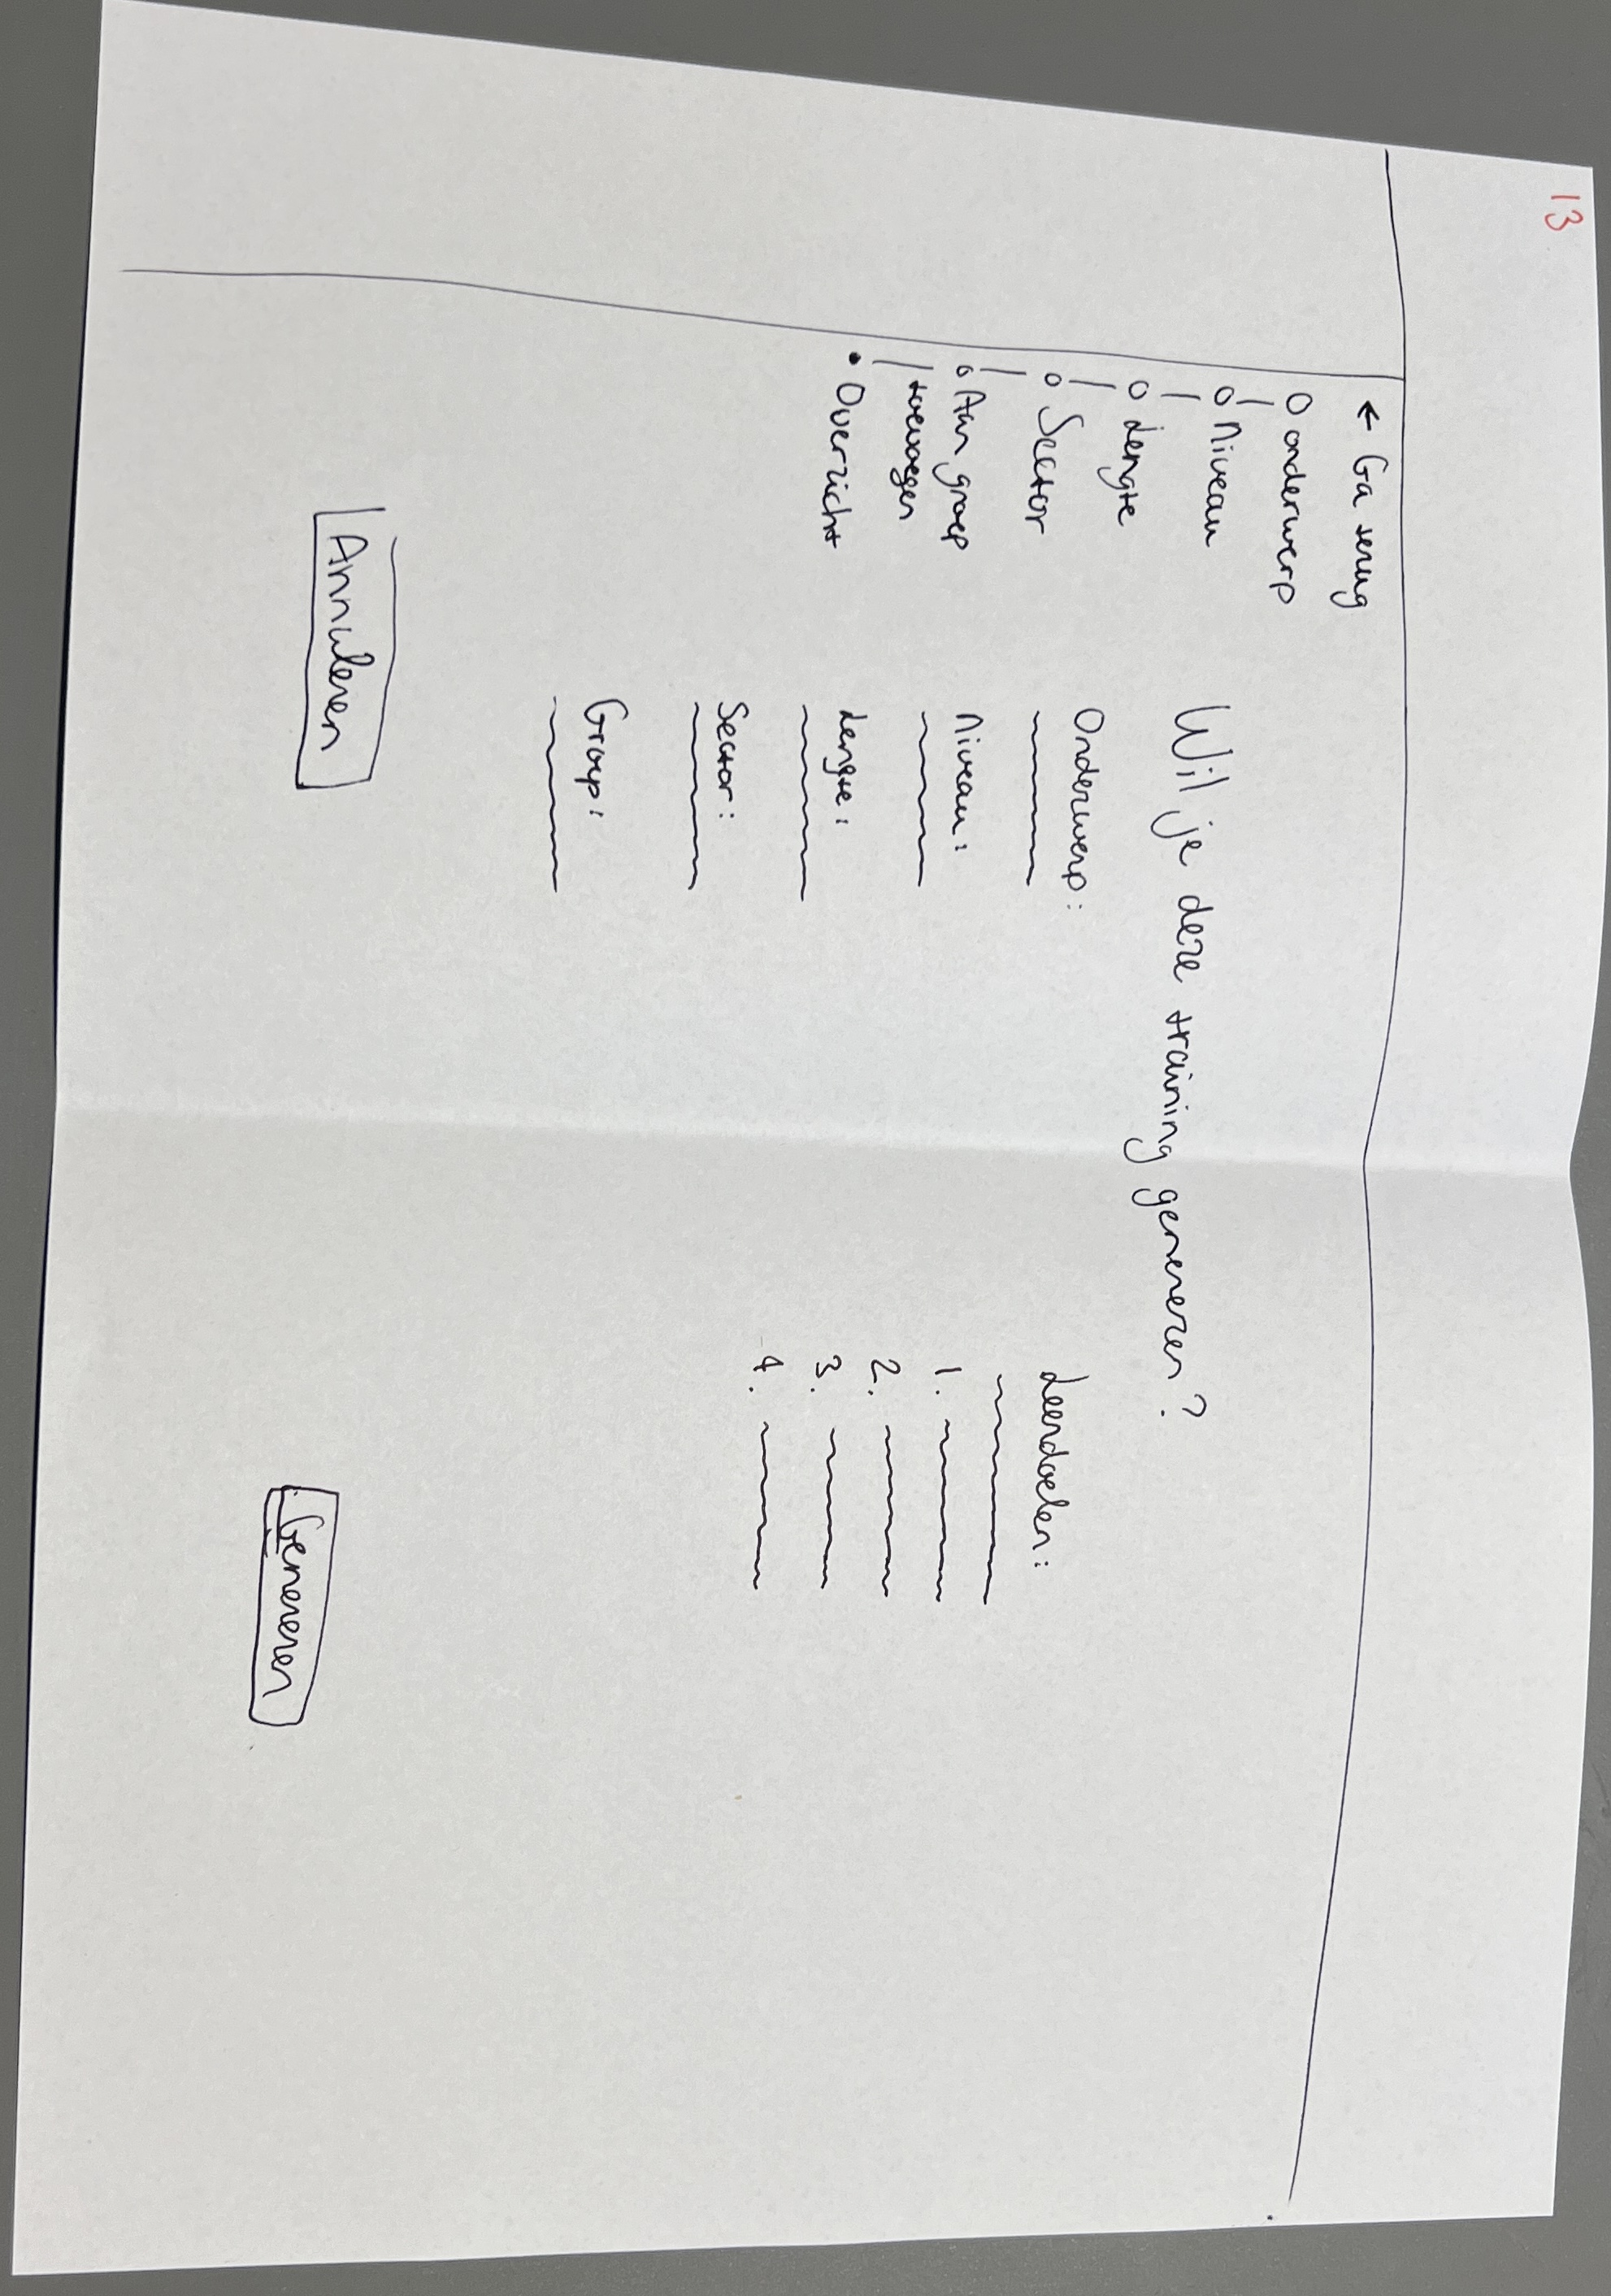 13
← Ga terug
onderwerp
Niveau
Lengte
Sector
Aan groep
toevoegen
Overzicht
Wil je deze training genereren?
Onderwerp:
Niveau:
Lengte:
Sector:
Groep:
Leerdoelen:
1.
2.
3.
4.
Annuleren
Genereren